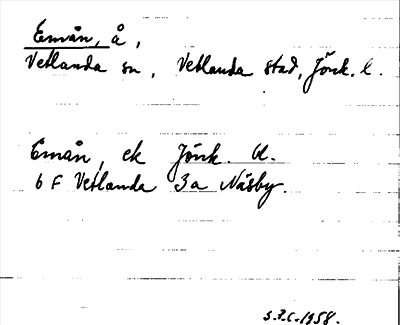 Emån, å,
Vetlanda sn, Vetlanda stad, Jönk. l.
Emån, ek Jönk. bl.
6 F Vetlanda 3a Näsby.
S.F.C. 1958.